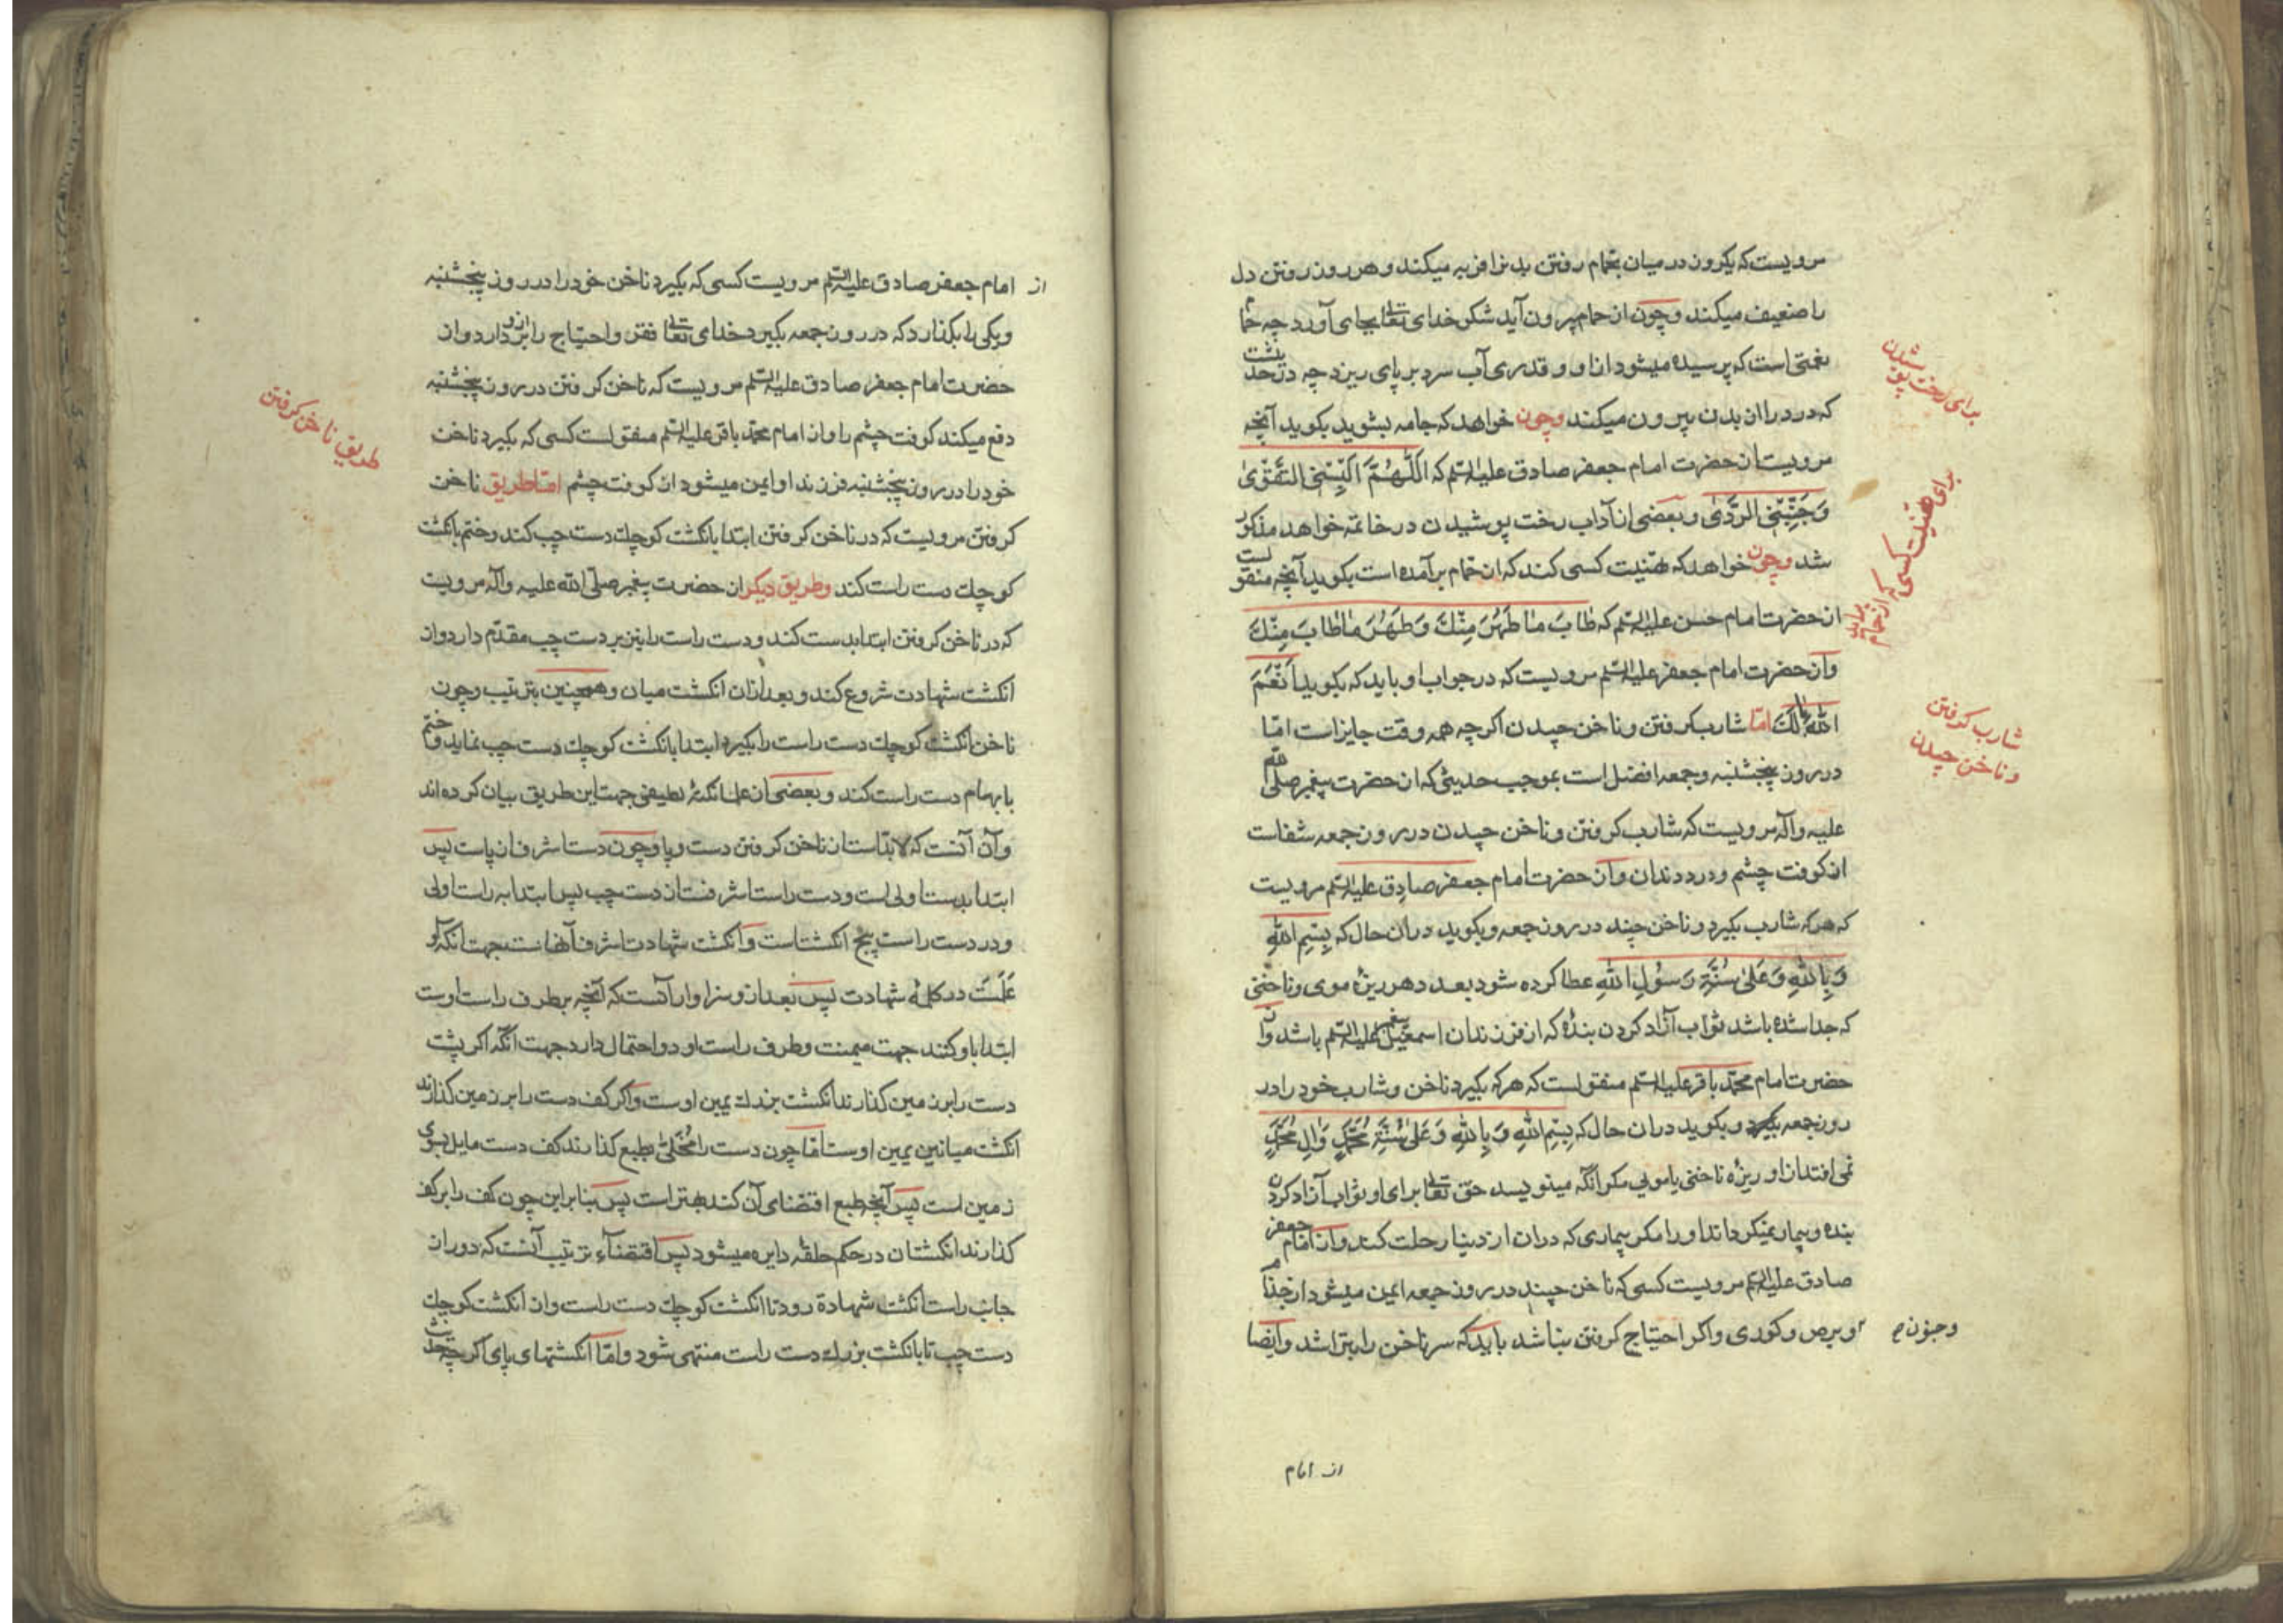 مرویست که یکروز در میان بحمام رفتن بدنرا فربه میکند و هر روز رفتن دل
را ضعیف میکند و چون از حمام بیرون آید شکر خدای تعالی بجای آورد چه حمام
نعمتی است که پرسیده میشود از او و قدری آب سرد بر پای ریزد چه
که درد را از بدن بیرون میکند و چون خواهد که جامه بپوشد بکوید آنچه
برای رخت پوشیدن
مرویست از حضرت امام جعفر صادق علیه السلم که اَللّهُمَّ اَلْبِسْنِی التَّقْوٰی
وَجَنِّبْنِی الرَّدٰی و بعضی از آداب رخت پوشیدن در خاتمه خواهد مذکور
شد و چون خواهد که تهنیت کسی کند که از حمام برآمده است بکوید آنچه منقولست
برای تهنیت کسی که از حمام برآید
از حضرت امام حسن علیه السلم که طٰابَ مٰا طَهُرَ مِنْكَ وَطَهُرَ مٰا طٰابَ مِنْكَ
و از حضرت امام جعفر علیه السلم مرویست که در جواب او باید که بکوید اَنْعَمَ
اللهُ بٰالَكَ امّا شارب کرفتن و ناخن چیدن اکرچه همه وقت جایز است امّا
شارب کرفتن
و ناخن چیدن
در روز پنجشنبه و جمعه افضل است بموجب حدیثی که از حضرت پیغمبر صلی الله
علیه و آله مرویست که شارب کرفتن و ناخن چیدن در روز جمعه شفاست
از کوفت چشم و درد دندان و از حضرت امام جعفر صادق علیه السلم مرویست
که هر که شارب بکیرد و ناخن چیند در روز جمعه و بکوید در آن حال که بِسْمِ اللهِ
وَبِاللهِ وَعَلیٰ سُنَّةِ رَسُولِ اللهِ عطا کرده شود بعدد هر ریزهٔ موی و ناخنی
که جدا شده باشد ثواب آزاد کردن بندهٔ که از فرزندان اسمعیل پیغمبر علیه السلم باشد و از
حضرت امام محمّد باقر علیه السلم منقولست که هر که بکیرد ناخن و شارب خود را در
روز جمعه و بکوید در آن حال که بِسْمِ اللهِ وَبِاللهِ وَعَلیٰ سُنَّةِ مُحَمَّدٍ وَاٰلِ مُحَمَّدٍ
نمی افتد از او ریزهٔ ناخنی یا مویی مکر آنکه مینویسد حق تعالی برای او ثواب آزاد کردن
بنده و بیمار نمیکرداند او را مکر بیماری که در آن از دنیا رحلت کند و از امام جعفر
صادق علیه السلم مرویست کسی که ناخن چیند در روز جمعه ایمن میشود از جذام
و جنون
و برص و کوری و اکر احتیاج کرفتن نباشد باید که سر ناخن را بتراشد و ایضا
از امام
از امام جعفر صادق علیه السلم مرویست کسی که بکیرد ناخن خود را در روز پنجشنبه
و یکی را بکذارد که در روز جمعه بکیرد خدای تعالی فقر و احتیاج را از او بردارد و از
حضرت امام جعفر صادق علیه السلم مرویست که ناخن کرفتن در روز پنجشنبه
دفع میکند کوفت چشم را و از امام محمّد باقر علیه السلم منقولست کسی که بکیرد ناخن
طریق ناخن کرفتن
خود را در روز پنجشنبه فرزند او ایمن میشود از کوفت چشم امّا طریق ناخن
کرفتن مرویست که در ناخن کرفتن ابتدا بانکشت کوچك دست چپ کند و ختم بانکشت
کوچك دست راست کند و طریق دیکر از حضرت پیغمبر صلّی الله علیه و آله مرویست
که در ناخن کرفتن ابتدا بدست کند و دست راست را نیز بر دست چپ مقدّم دارد و از
انکشت شهادت شروع کند و بعد از آن انکشت میان و همچنین بترتیب و چون
ناخن انکشت کوچك دست راست را بکیرد ابتدا بانکشت کوچك دست چپ نماید و ختم
بابهام دست راست کند و بعضی از علما نکتهٔ لطیفی جهت این طریق بیان کرده اند
و آن آنست که لابدّ است از ناخن کرفتن دست و پا و چون دست اشرف از پاست پس
ابتدا بدست اولی است و دست راست اشرفست از دست چپ پس ابتدا به راست اولی
و در دست راست پنج انکشت است و انکشت شهادت اشرف آنهاست جهت آنکه او
عَلَمَست در کلمهٔ شهادت پس بعد از او سزاوار آنست که آنچه بر طرف راست اوست
ابتدا باو کنند جهت میمنت و طرف راست او دو احتمال دارد جهت آنکه اکر پشت
دست را بر زمین کذارند انکشت بزرك یمین اوست و اکر کف دست را بر زمین کذارند
انکشت میانین یمین اوست امّا چون دست را مُخَلّیٰ بطبع کذارند کف دست مایل بسوی
زمین است پس آنچه طبع اقتضای آن کند بهتر است پس بنابراین چون کف را بر کف
کذارند انکشتان در حکم حلقه دایره میشود پس اقتضاء ترتیب آنست که دور از
جانب راست انکشت شهادة رود تا انکشت کوچك دست راست و از انکشت کوچك
دست چپ تا بانکشت بزرك دست راست منتهی شود و امّا انکشتهای پای اکرچه